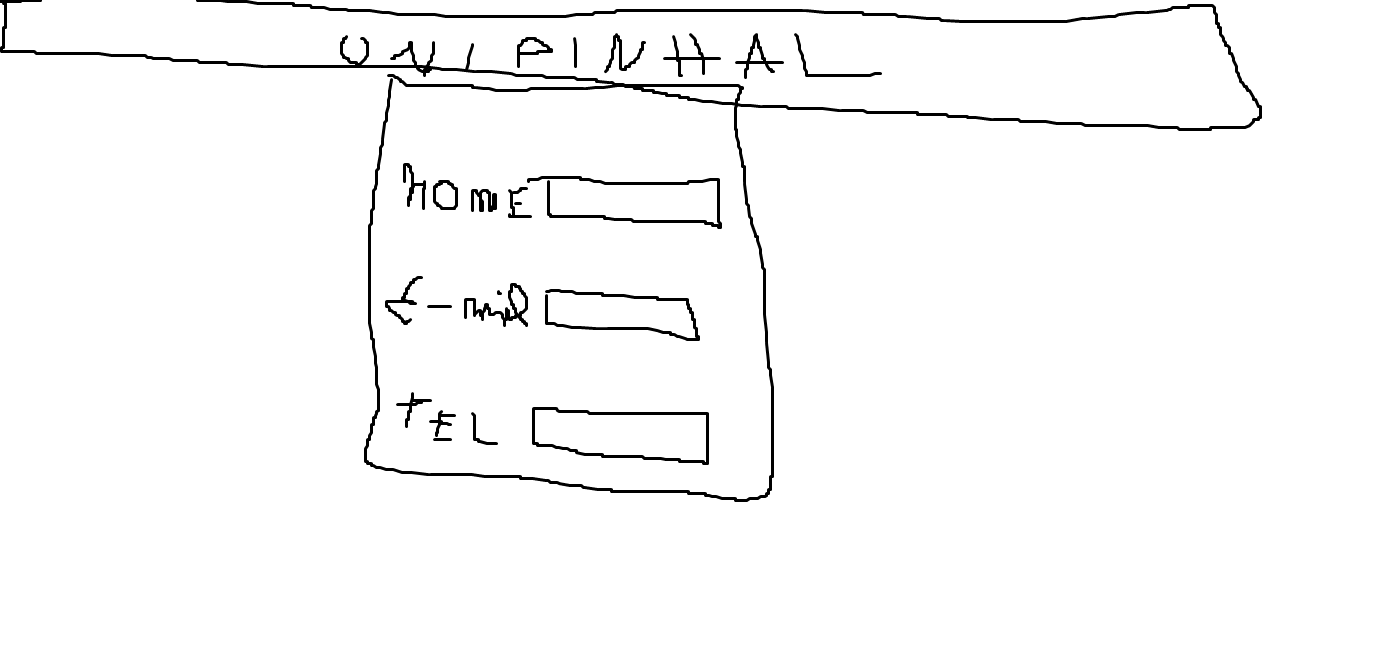 UNIPINHAL
HOME
E-mail
TEL